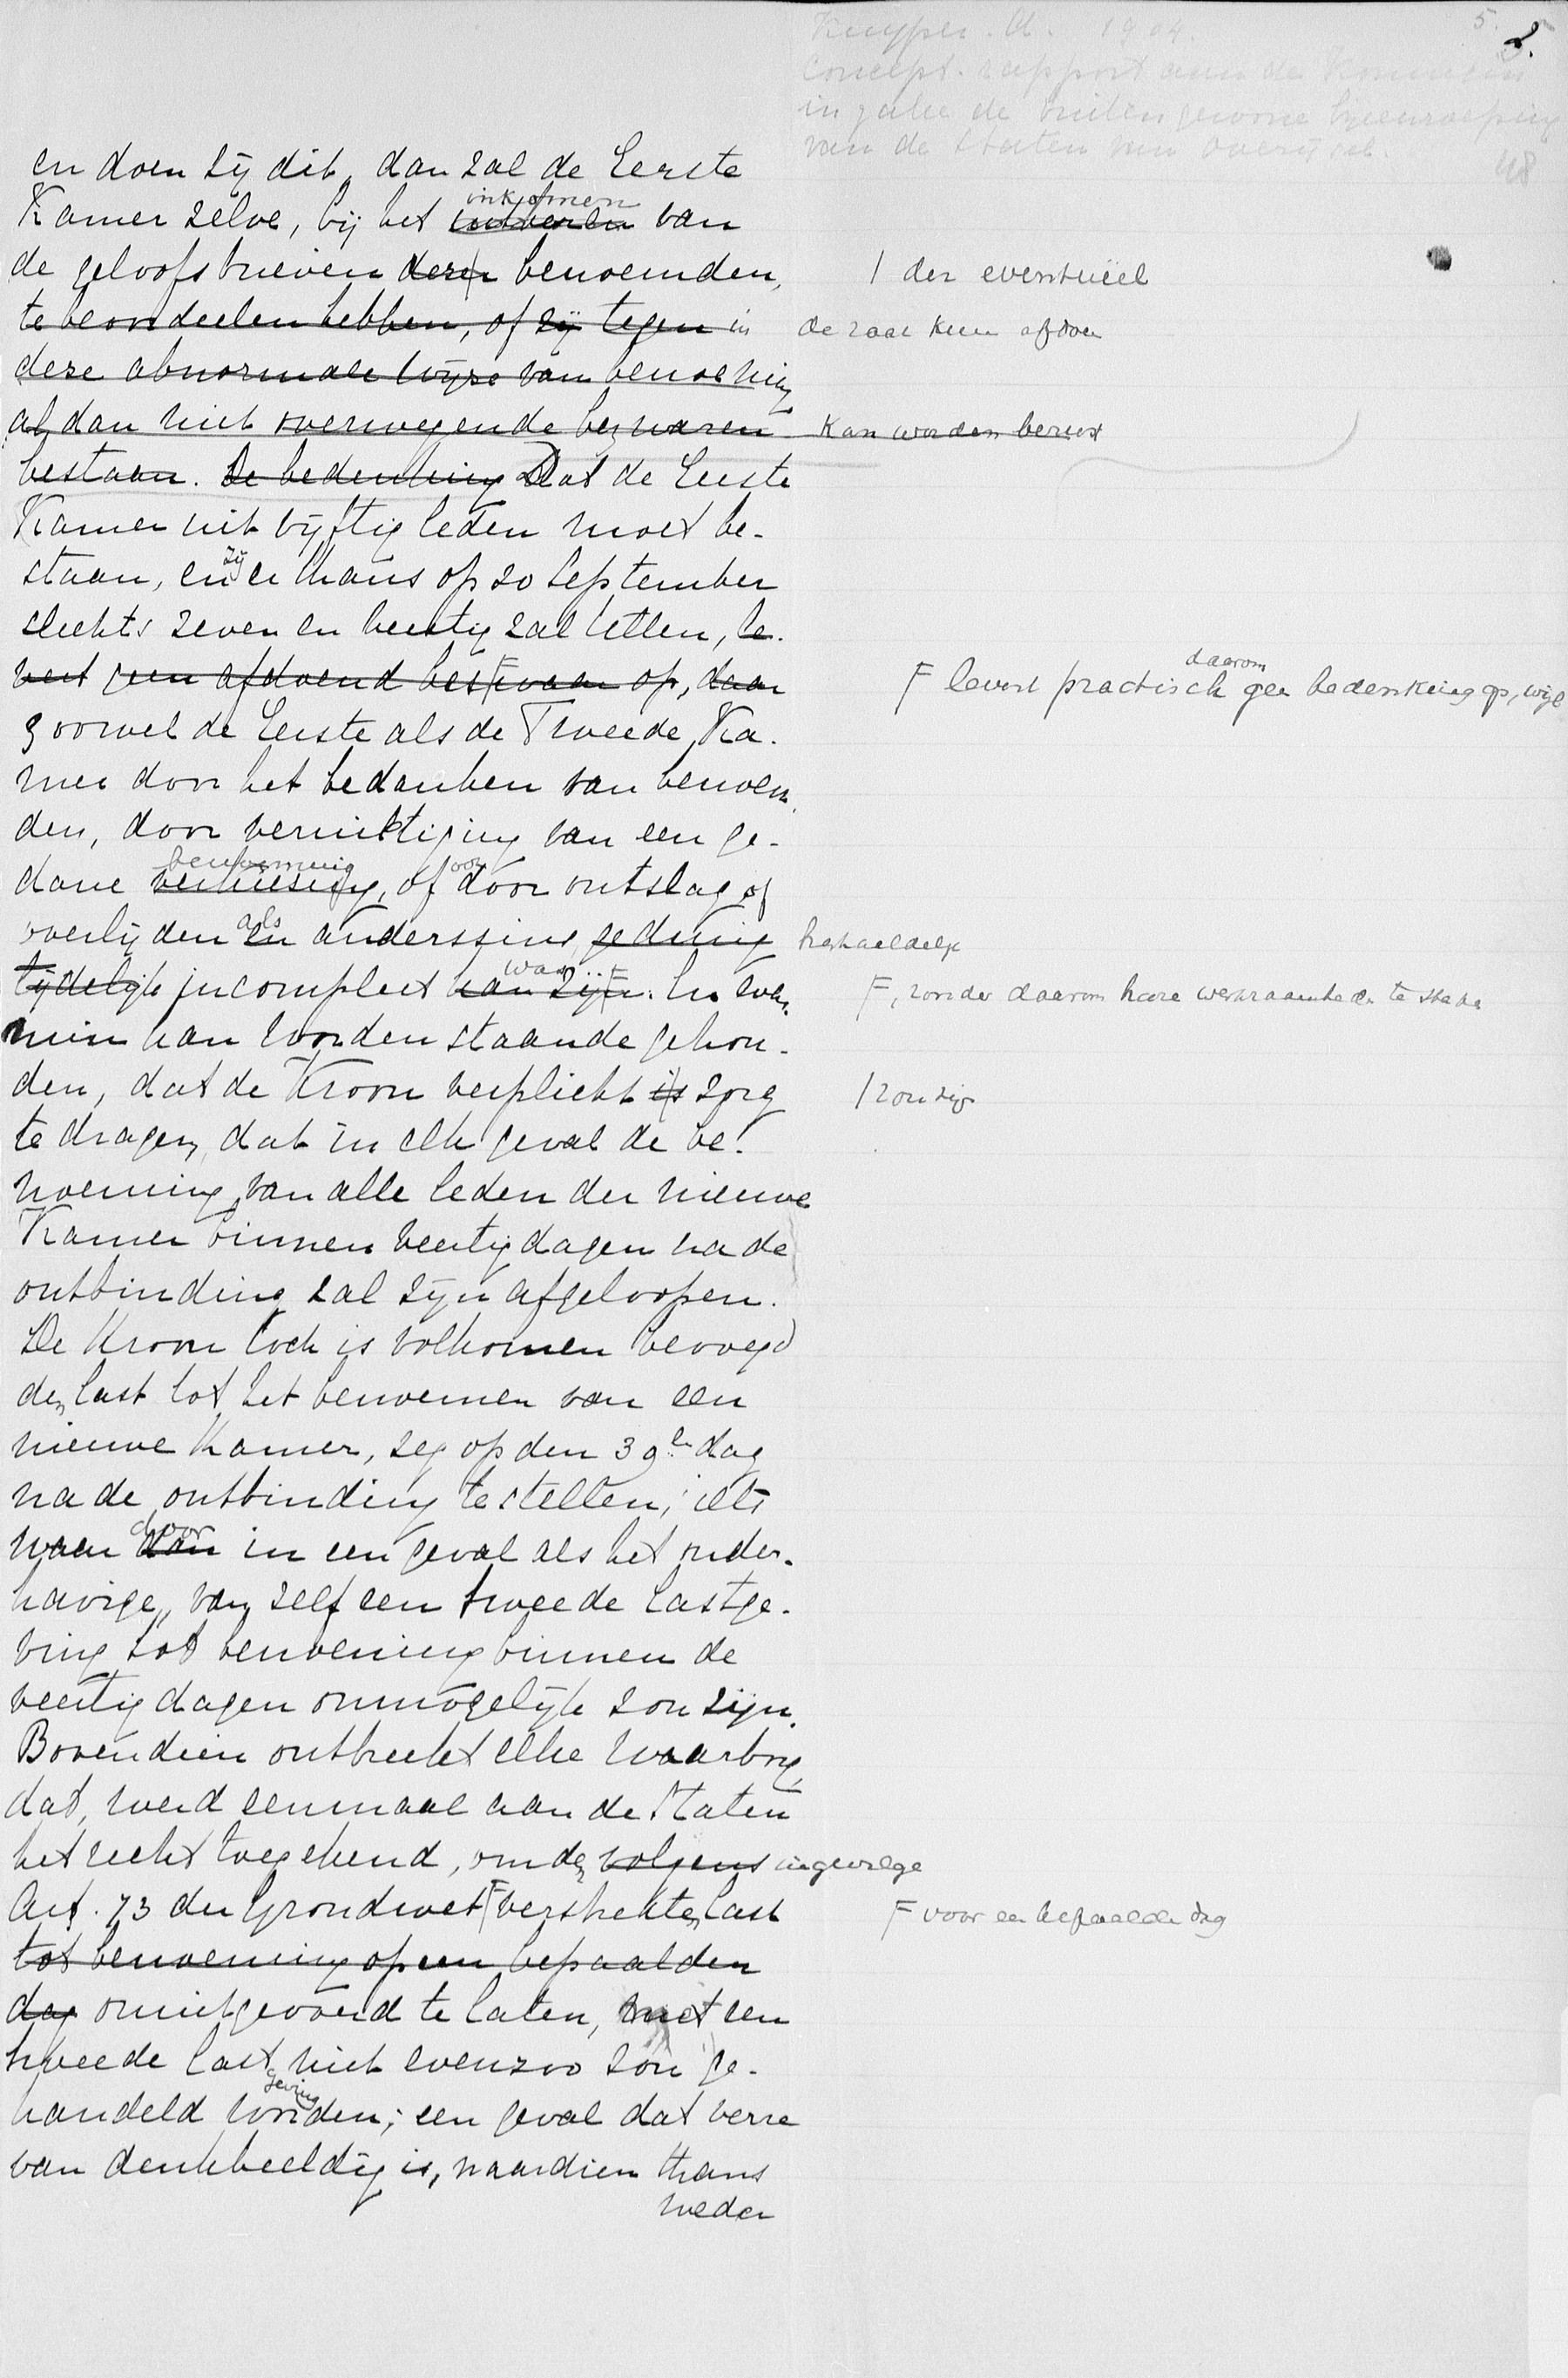 Kuyper. A. 1904.
concept-rapport aan de Koningin
in zake de buitengewone bijeenroeping
van de Staten van Overijsel
48
5.
en doen zij dit, dan zal de Eerste
Kamer zelve, bij het inkomen van
de geloofsbrieven dezer benoemden, / der eventueel
te beoordeelen hebben, of zij tegen in de zaak
deze abnormale wijze van benoeming
al dan niet overwegende bezwaren kan worden berust
bestaan. De bedenking Dat de Eerste
Kamer uit vijftig leden moet be-
staan, en zij er thans op 20 September
slechts zeven en veertig zal tellen, le-
vert geen afdoend bezwaar op, daar F levert practisch daarom geen bedenking op, wijl
zoowel de Eerste als de Tweede Ka-
mer door het bedanken van benoem-
den, door vernietiging van een ge-
dane verkiezing, benoeming of door ontslag of
overlijden en als anderszins gedurig herhaaldelijk
tijdelijk incompleet kan zijn. was En even- F, zonder daarom hare werkzaamheden te staken
min kan worden staande gehou-
den, dat de Kroon verplicht is zorg / zou zijn
te dragen, dat in elk geval de be-
noeming van alle leden der nieuwe
Kamer binnen veertig dagen na de
ontbinding zal zijn afgeloopen.
De Kroon toch is volkomen bevoegd
den last tot het benoemen van een
nieuwe Kamer, zeg op den 39en dag
na de ontbinding te stellen; iets
waar dan door in een geval als het onder-
havige, van zelf een tweede lastge-
ving tot benoeming binnen de
veertig dagen onmogelijk zou zijn.
Bovendien ontbreekt elke waarborg,
dat, werd eenmaal aan de Staten
het recht toegekend, om den volgens ingevolge
Art. 73 der Grondwet F verstrekten last F voor een bepaalden dag
tot benoeming op een bepaalden
dag onuitgevoerd te laten, met een
tweede lastgeving niet evenzoo zou ge-
handeld worden; een geval dat verre
van denkbeeldig is, naardien thans
weder